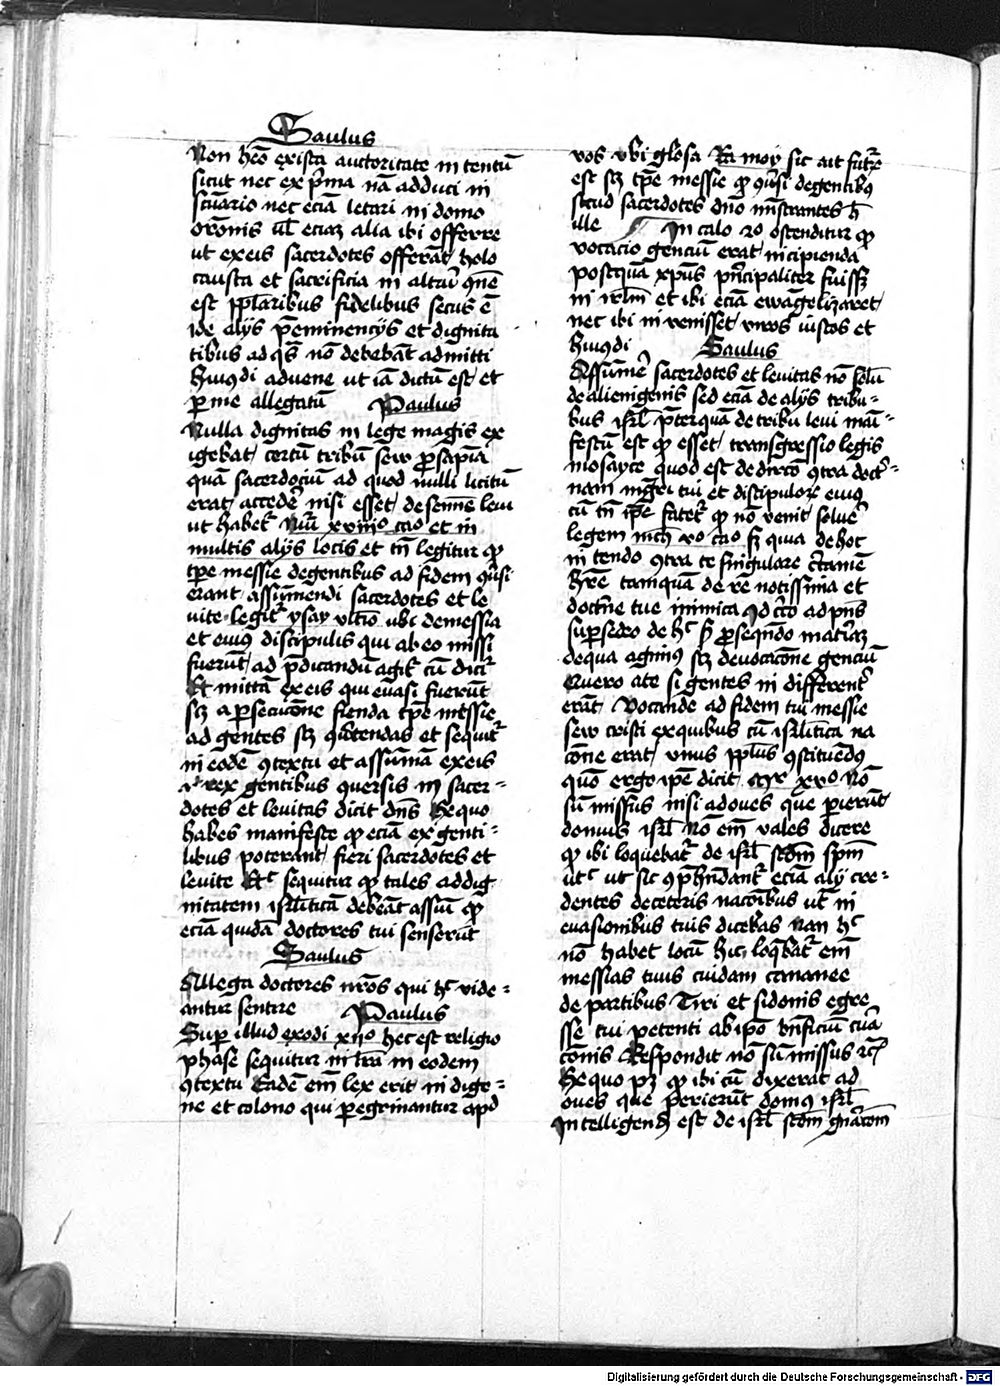 Saulus
Non heō exista auctoritate in tentū
sicut nec ex p̄ma nā adduci in
sc̄uario nec ecia letari in domo
orōnis ul̄ eciaꝫ alia ibi offerre
ut exeis sacerdotes offerāt holo
causta et sacrificia in altari qn̄e
est pplaribus fidelibus secus ē
ide alijs p̄eminencijs et dignita
tibus ad qs̄ nō debebāt admitti
hmōi aduene ut iā dictū est et
ꝑ me allegatū Paulus
Nulla dignitas in lege magis ex
igebat certū tribū seu ꝓsapiā
quā sacerdociū ad quod nulli licitū
erat accedē nisi esset de semīe leui
ut habet᷑ Nūi xviijo cao et in
multis alijs locis et tn̄ legitur ꝙ
tp̄e messie degentibus ad fidem ꝯ̄si
erant assūmendi sacerdotes et le
uite legit᷑ ysay vltio ubi demessia
et eius discipulis qui abeo missi
fuerūt ad p̄dicandū agit᷑ cū dicit᷑
Et mittā exeis qui euasi fuerūt
scꝫ a ꝑsecucōne fienda tp̄e messie
ad gentes scꝫ ꝯ̄tendas et sequit᷑
in eodē ꝯtextu et assumā exeis
gentibus quersis in sacer-
dotes et leuitas dicit dn̄s Hequo
habes manifeste ꝙ eciā ex genti-
libus poterant fieri sacerdotes et
leuite Etc̄ sequitur ꝙ tales ad dig
nitatem isrl̄iticā debeāt assūi ꝙ
eciā quidā doctores tui senserūt
Saulus
Allega doctores nr̄os qui hc̄ vide-
antur sentire Paulus
Sup illud exodi xijo hec est religio
phase sequitur in lr̄a in eodem
ꝯtextu Eadē em̄ lex erit indige-
ne et colono qui ꝑegrinantur apd
vos vbi glosa Ra moy sic ait futr̄
est scꝫ tp̄e messie ꝙ ꝯ̄si degentibꝰ
sicud sacerdotes dn̄o mīstrantes hec
ille In calo ro ostenditur ꝙ
vocacio genciū erat incipienda
postquā xpūs pn̄cipaliter fuissꝫ
in irlm̄ et ibi eciā ewāgelizaret
nec ibi in venisset viros iustos et
hmōi Saulus
Assūmē sacerdotes et leuitas nō solū
de alienigenis sed eciā de alijs tribu-
bus isrl̄ p̄terquā de tribu leui māi-
festū est ꝙ esset transgressio legis
mosayce quod est de dircō ꝯtra doct᷑-
nam mgr̄i tui et discipuloꝝ eius
cū tn̄ ip̄e fatet᷑ ꝙ nō venit soluē
legem mth̄ vo cao sꝫ quia de hoc
in tendo ꝯtra te singulare ctamē
hr̄e tamquā de rē notissima et
doct᷑ne tue inimica Id cc̄o ad pn̄s
supsedeo de hc̄ sꝫ ꝓsequendo mat᷑iaꝫ
dequa agimꝰ scꝫ deuocacōne genciū
Quero ate si gentes in differentr̄
erāt Vocande ad fidem tui messie
seu cristi exquibus cū isrl̄itica na
cōne erat vnus ppl̄us ꝯstituendꝰ
quō ergo ip̄e dicit mth̄ xvo Nō
sū missus nisi adoues que pierūt
domus isrl̄ Nō em̄ vales dicere
ꝙ ibi loquebat᷑ de isrl̄ scdm̄ spm̄
utc̄ ut sic ꝯph̄ndant᷑ eciā alij cre-
dentes deceteris nacōibus ut in
euasionibus tuis dicebas nam hc̄
nō habet locū hic loq̄bat᷑ em̄
messias tuus cuidam cananee
de partibus Tiri et sidonis egre
sse tui petenti ab ip̄o bn̄ficiū cura
cōnis Respondit nō sū missus zc̄
Hequo pꝫ ꝙ ibi cū dixerat ad
oues que perierūt domꝰ isrl̄
Intelligendū est de isrl̄ scdm̄ gn̄acōm
Digitalisierung gefördert durch die Deutsche Forschungsgemeinschaft - DFG